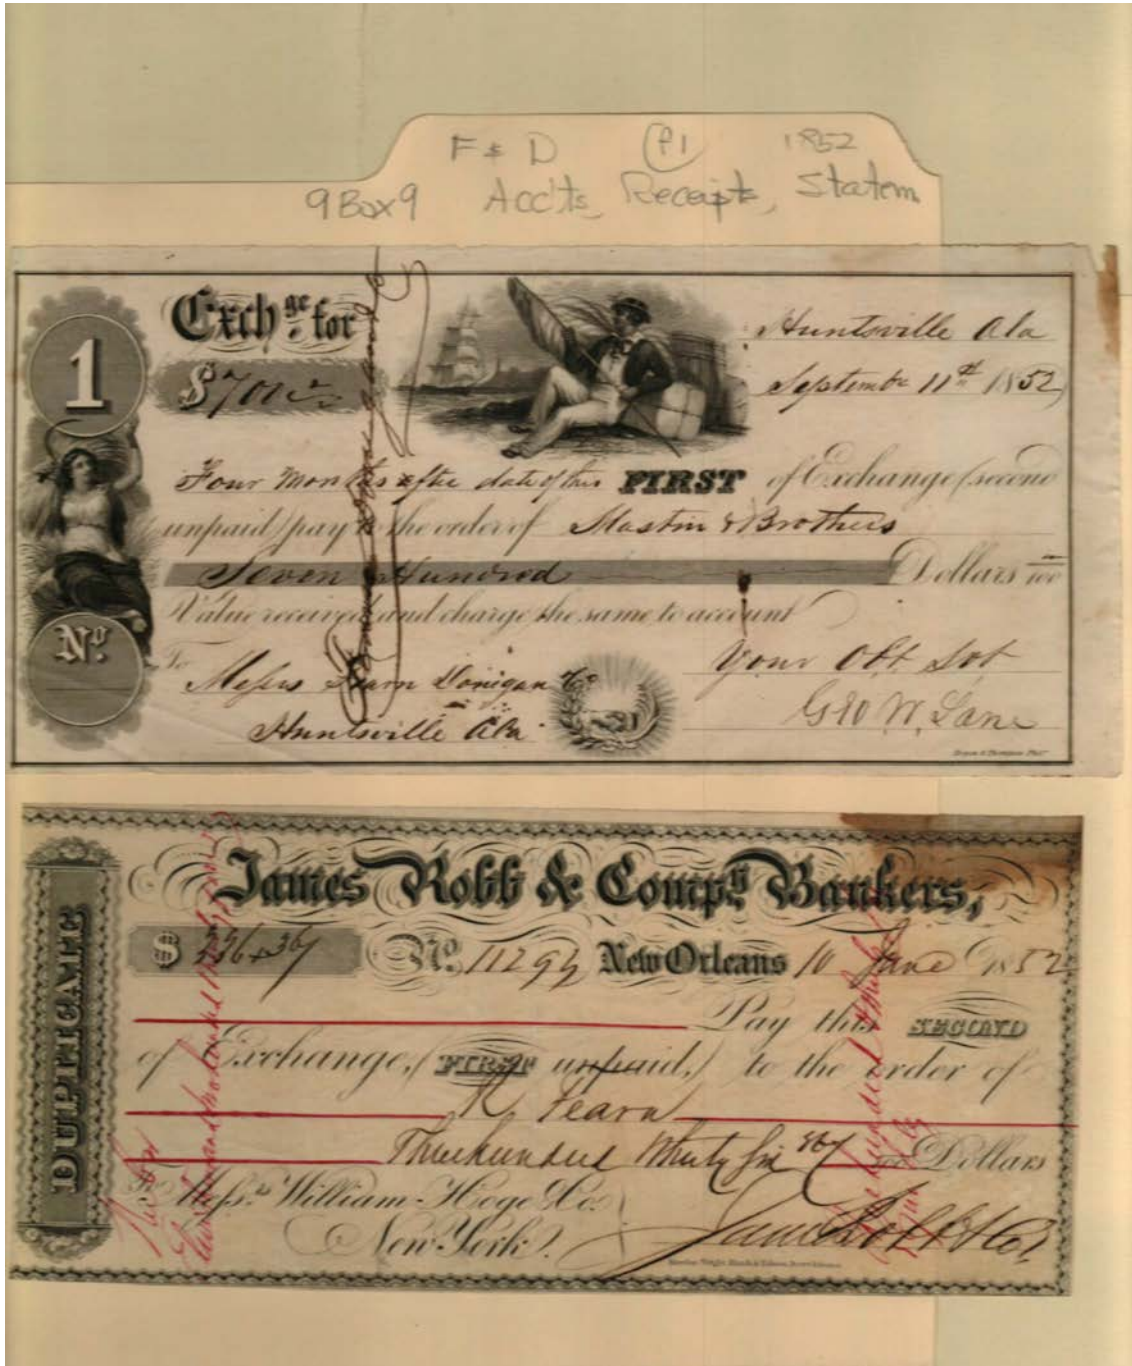 F & D P1 1852
9 Box 9 Acc'ts, Receipts, Statem
1
Exchge for
$700
Huntsville Ala
September 11th 1852
Four Months after date of this FIRST of Exchange (second
unpaid) pay to the order of Mastin & Brothers
Seven Hundred Dollars
Value received and charge the same to account
No.
To Your Obt Svt
Messrs Fearn Donigan & Co
Geo W. Lane
Huntsville Ala
DUPLICATE
James Robb & Compy. Bankers,
$ No. New Orleans 10 June 1852
Pay this SECOND
of Exchange, (FIRST unpaid,) to the order of
R. Fearn
Three hundred thirty six Dollars
To Mess.rs William Hoge & Co.
New York.
James Robb & Co.